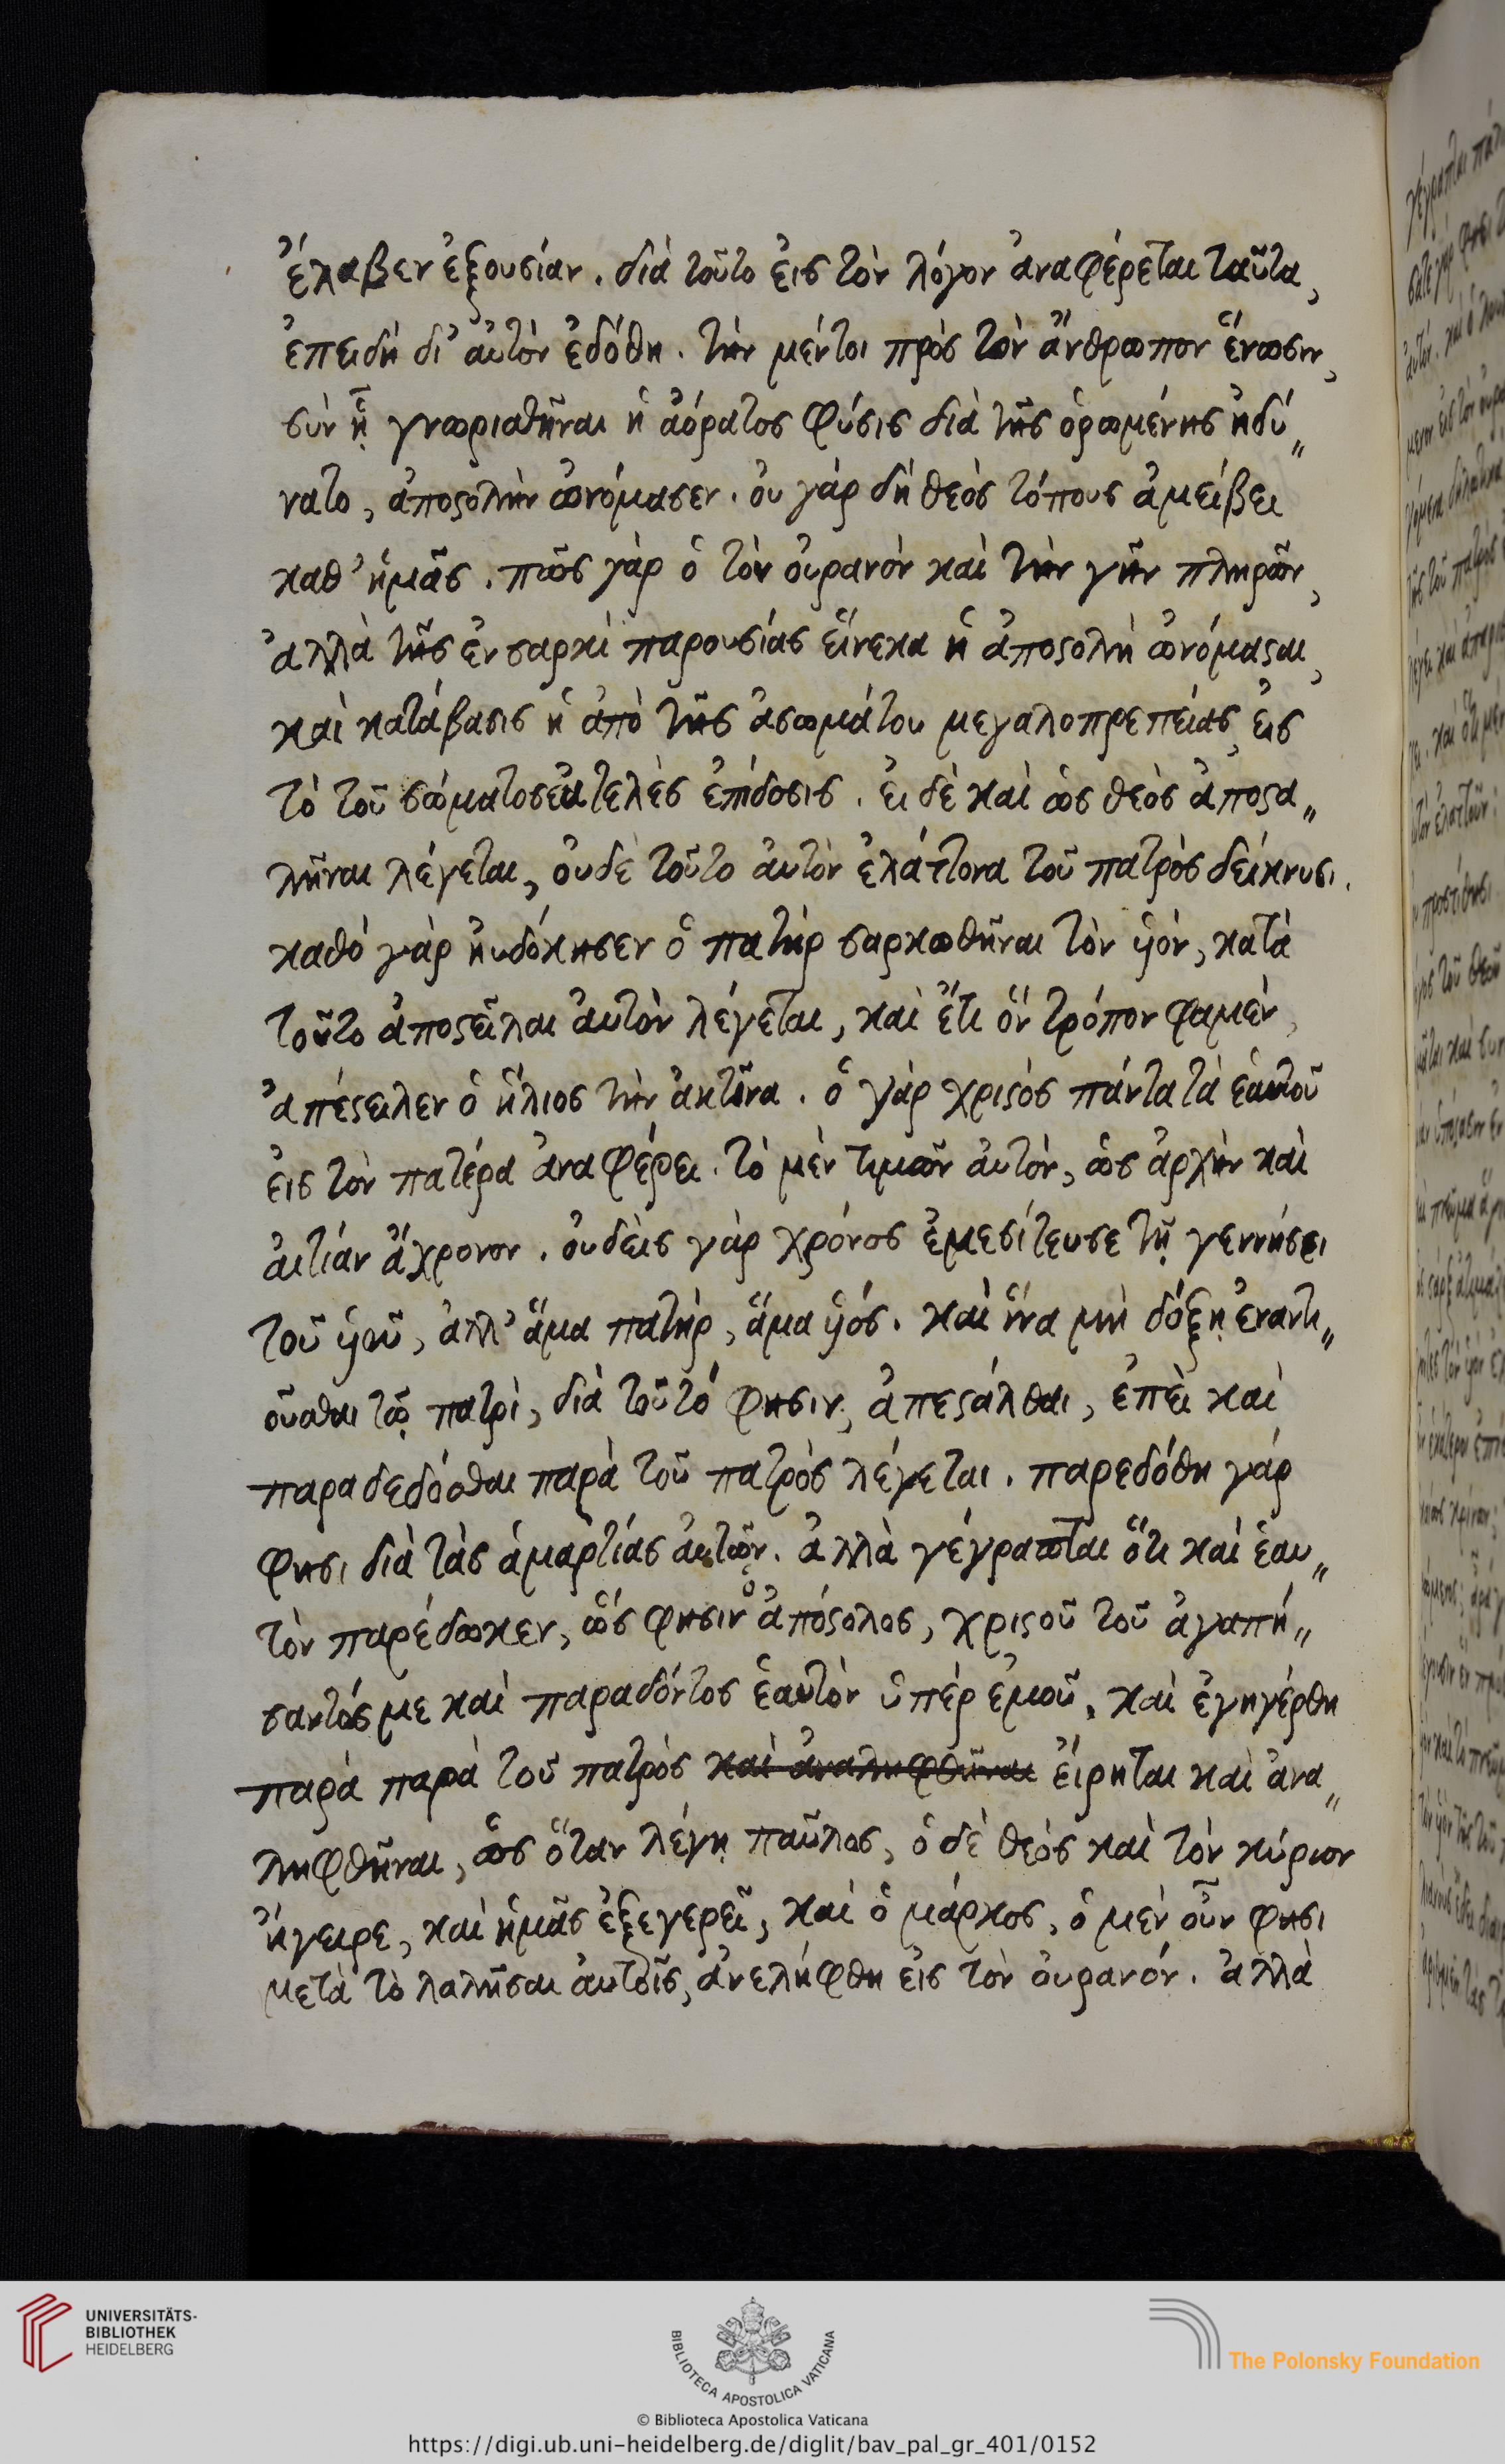 ἔλαβεν ἐξουσίαν. διὰ τοῦτο ἐις τὸν λόγον ἀναφέρεται ταῦτα,
ἐπειδὴ δι' ἀυτὸν ἐδόθη. τὴν μέντοι πρὸς τὸν ἄνθρωπον ἕνωσιν,
σὺν ᾗ γνωρισθῆναι ἡ ἀόρατος φύσις διὰ τῆς ὁρωμένης ἠδύ„
νατο, ἀποϛολὴν ὠνόμασεν. ὀυ γὰρ δὴ θεὸς τόπους ἀμείβει
καθ' ἡμᾶς. πῶς γὰρ ὁ τὸν ὀυρανὸν καὶ τὴν γῆν πληρῶν,
ἀλλὰ τῆς ἐν σαρκὶ παρουσίας εἵνεκα ἡ ἀποϛολὴ ὠνόμαϛαι,
καὶ κατάβασις ἡ ἀπὸ τῆς ἀσωμάτου μεγαλοπρεπείας, ἐις
τὸ τοῦ σώματος ἐυτελὲς ἐπίδοσις. ἐι δὲ καὶ ὡς θεὸς ἀποϛα„
λῆναι λέγεται, ὀυδὲ τοῦτο ἀυτὸν ἐλάττονα τοῦ πατρὸς δείκνυσι.
καθὸ γὰρ ἠυδόκησεν ὁ πατὴρ σαρκωθῆναι τὸν ὑόν, κατὰ
τοῦτο ἀποϛεῖλαι ἀυτὸν λέγεται, καὶ ἔτι ὅν τρόπον φαμὲν,
ἀπέϛειλεν ὁ ἥλιος τὴν ἀκτῖνα. ὁ γὰρ χριϛὸς πάντα τὰ ἑαυτοῦ
ἐις τὸν πατέρα ἀναφέρει. τὸ μὲν τιμῶν ἀυτὸν, ὡς ἀρχὴν καὶ
ἀιτίαν ἄχρονον. ὀυδεὶς γὰρ χρόνος ἐμεσίτευσε τῇ γεννήσει
τοῦ ὑοῦ, ἀλλ' ἅμα πατὴρ, ἅμα ὑός. καὶ ἵνα μὴ δόξῃ ἐναντι„
οῦσθαι τῷ πατρὶ, διὰ τοῦτό φησιν, ἀπεϛάλθαι, ἐπεὶ καὶ
παραδεδόσθαι παρὰ τοῦ πατρὸς λέγεται. παρεδόθη γάρ
φησι διὰ τὰς ἁμαρτίας ἀυτῶν. ἀλλὰ γέγραπται ὅτι καὶ ἑαυ„
τὸν παρέδωκεν, ὥς φησιν ὁ ἀπόϛολος, χριϛοῦ τοῦ ἀγαπή„
σαντός με καὶ παραδόντος ἑαυτὸν ὑπὲρ ἐμοῦ. καὶ ἐγηγέρθη
παρὰ παρὰ τοῦ πατρὸς καὶ ἀναληφθῆναι ἐίρηται καὶ ἀνα„
ληφθῆναι, ὡς ὅταν λέγῃ παῦλος, ὁ δὲ θεὸς καὶ τὸν κύριον
ἤγειρε, καὶ ἡμᾶς ἐξεγερεῖ, καὶ ὁ μάρκος, ὁ μὲν οὖν φησι
μετὰ τὸ λαλῆσαι ἀυτοῖς, ἀνελήφθη ἐις τὸν ὀυρανόν. ἀλλὰ
UNIVERSITÄTS-
BIBLIOTHEK
HEIDELBERG
BIBLIOTECA APOSTOLICA VATICANA
The Polonsky Foundation
© Biblioteca Apostolica Vaticana
https://digi.ub.uni-heidelberg.de/diglit/bav_pal_gr_401/0152